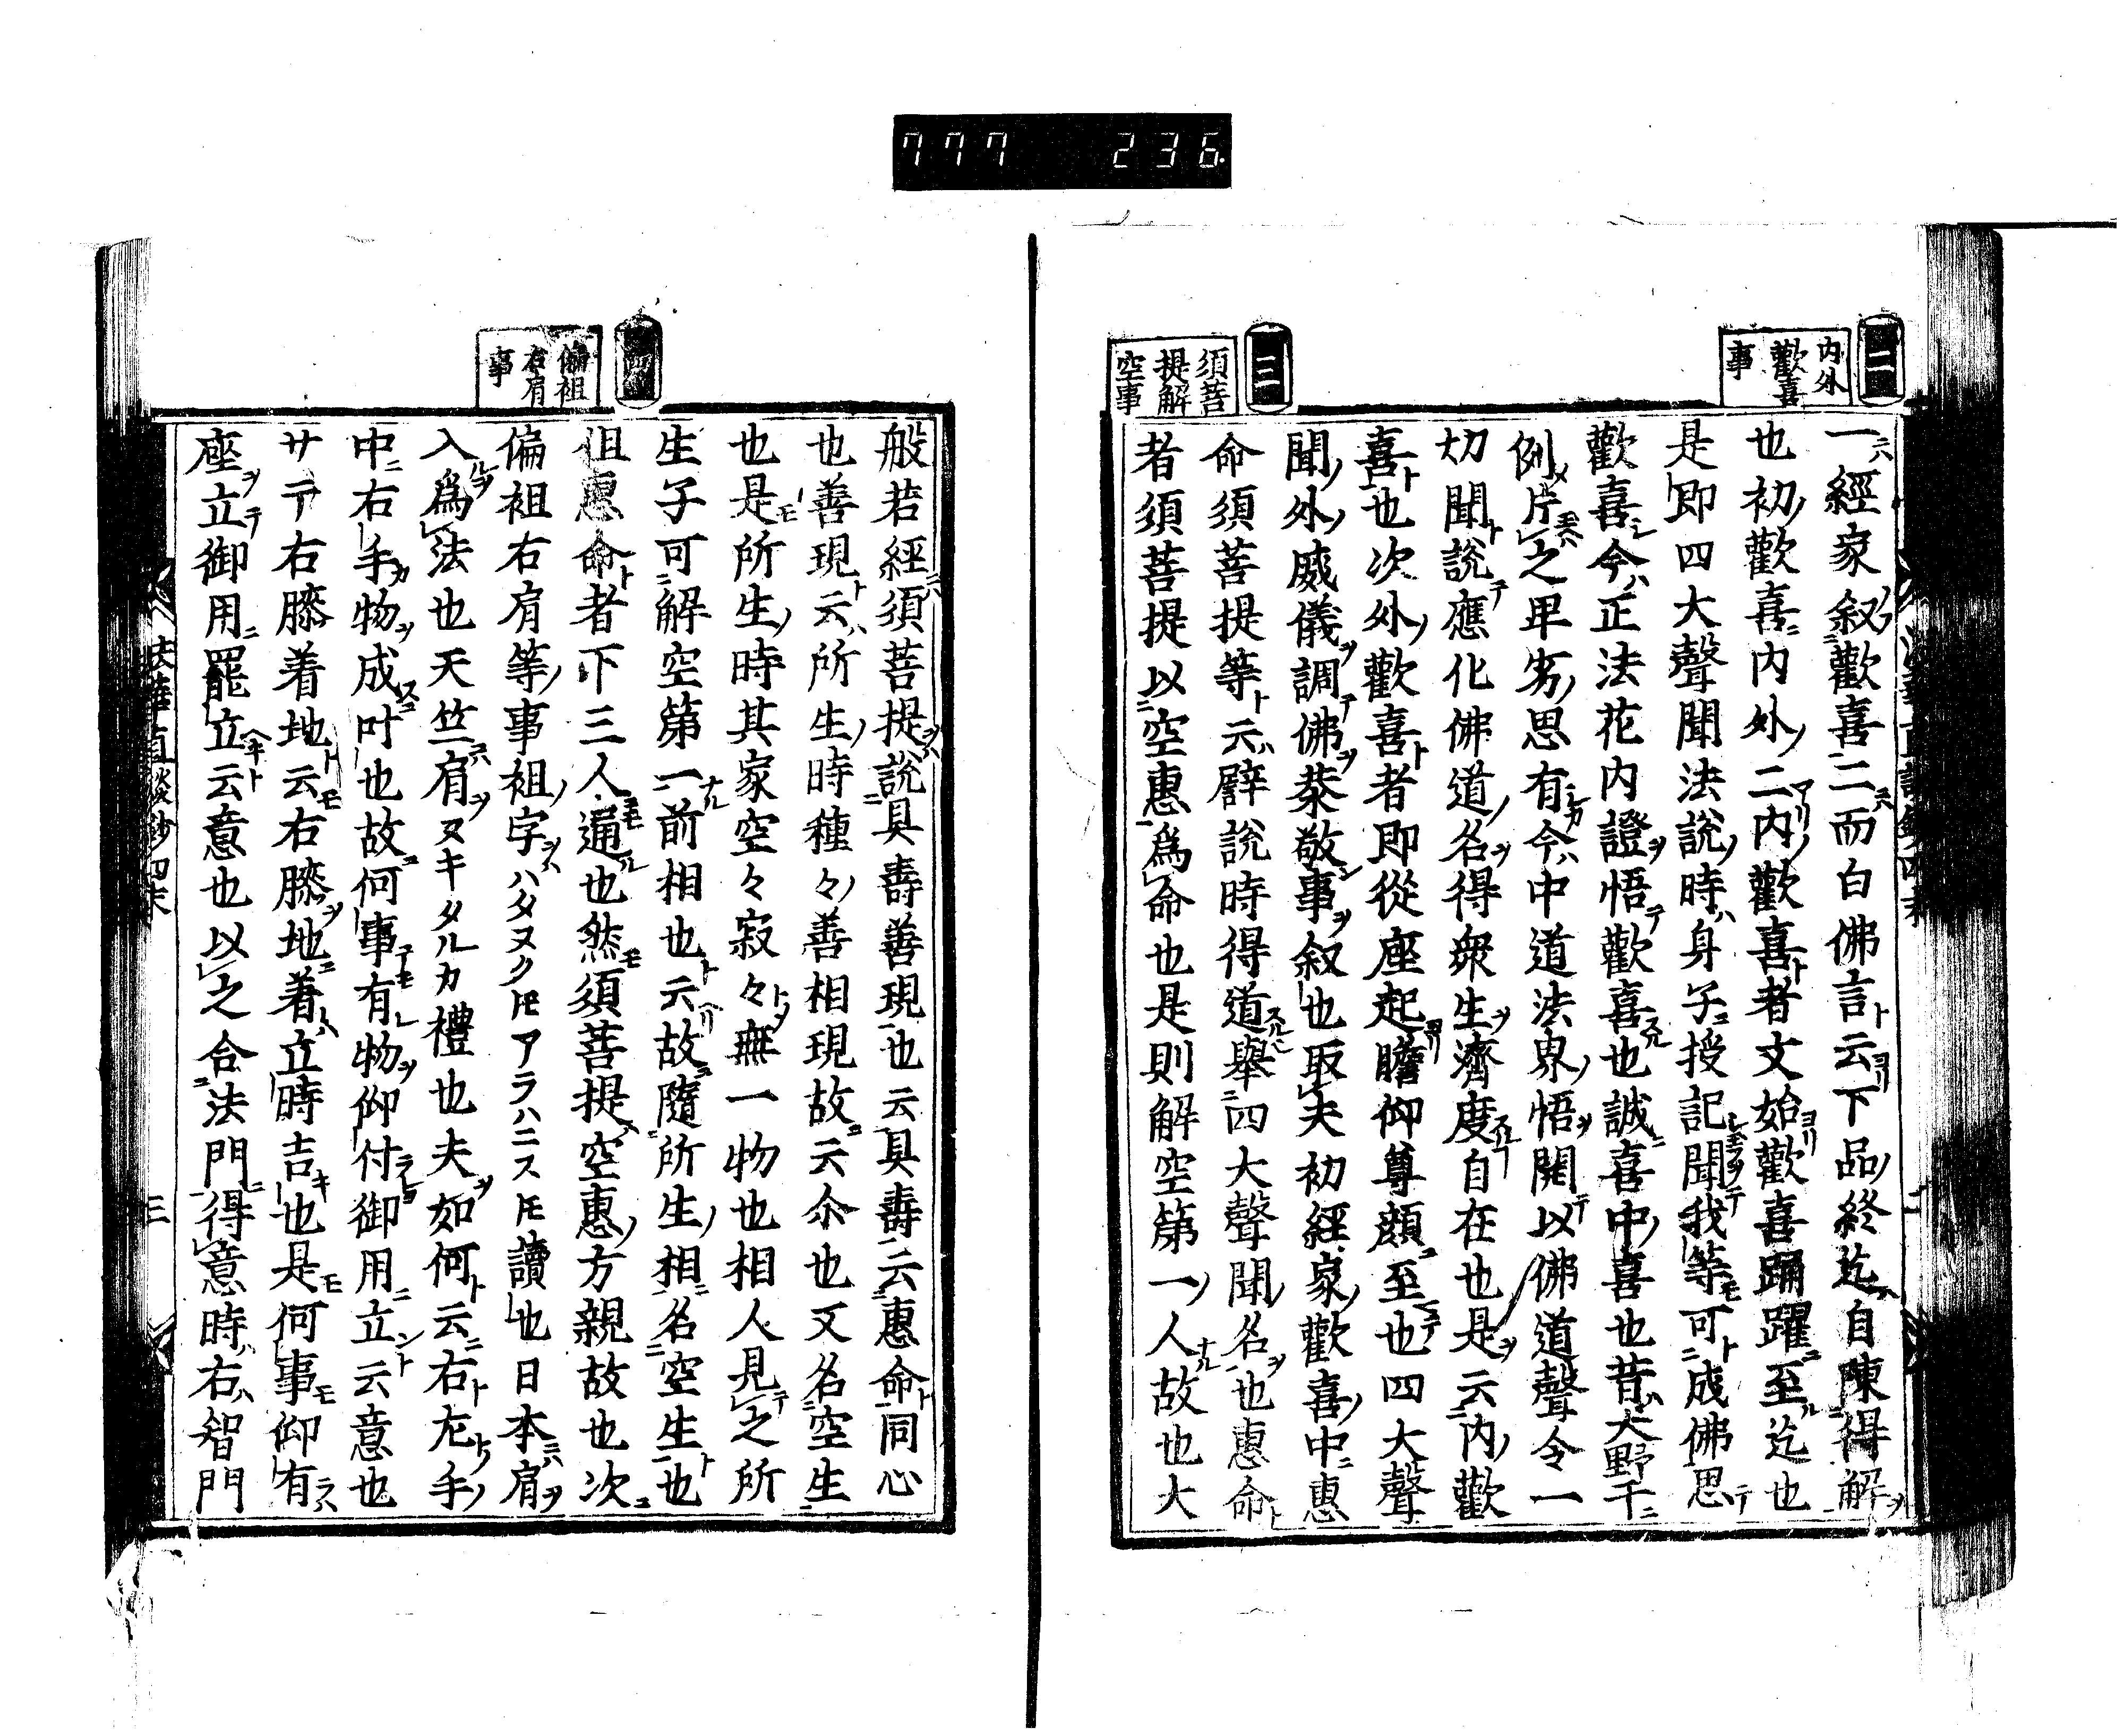 777 236
二
内外歡喜事
三
須菩提解空事
一經家叙歡喜二而白佛言云下品終迄自陳得解
也初歡喜内外二内歡喜者文始歡喜踊躍至迄也
是即四大聲聞法説時身子授記聞我等可成佛思
歡喜今正法花内證悟歡喜也誠喜中喜也昔犬野干
例片之卑劣思有今中道法界悟開以佛道聲令一
切聞説應化佛道名得衆生濟度自在也是云内歡
喜也次外歡喜者即從座起瞻仰尊顔至也四大聲
聞外威儀調佛恭敬事叙也取夫初經家歡喜中惠
命須菩提等云譬説時得道擧四大聲聞名也惠命
者須菩提以空惠爲命也是則解空第一人故也大
偏袒右肩事
般若經須菩提説具壽善現也云具壽云惠命同心
也善現云所生時種々善相現故云尒也又名空生
也是所生時其家空々寂々無一物也相人見之所
生子可解空第一前相也云故隨所生相名空生也
但惠命者下三人通也然須菩提空惠方親故也次
偏袒右肩等事袒字ハタヌクトモアラハニストモ讀也日本肩
入爲法也天竺肩ヌキタルカ禮也夫如何云右左手
中右手物成叶也故何事有物仰付御用立云意也
サテ右膝着地云右膝地着立時吉也是何事仰有
座立御用罷立云意也以之合法門得意時右智門
法華直談鈔四末
三